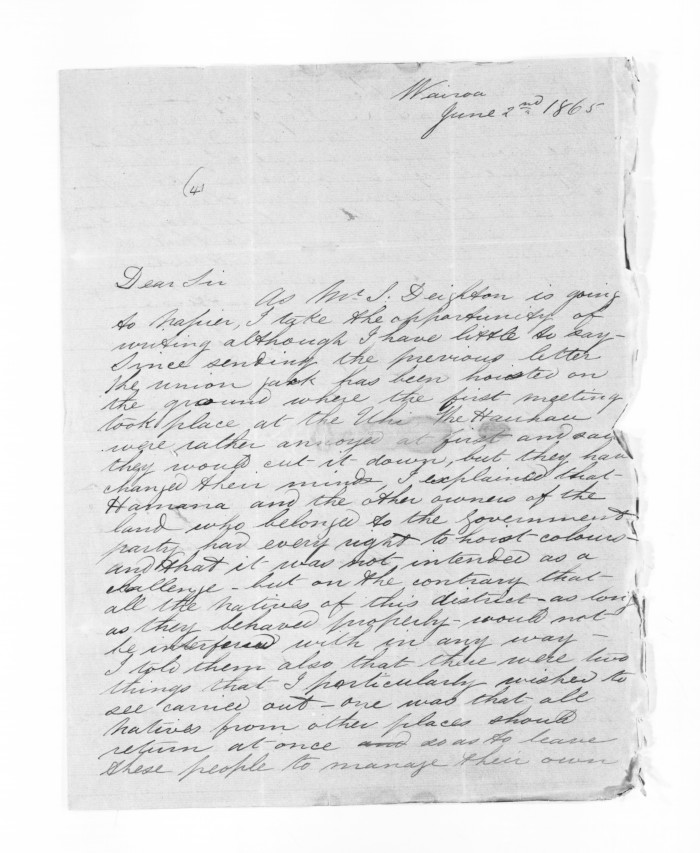 Wairoa
June 2nd 1865
(4)
Dear Sir
As Mr. S. Deighton is going
to Napier, I take the opportunity of
writing although I have little to say –
Since sending the previous letter
the union jack has been hoisted on
the ground where the first meeting
took place at the Uhi The Hauhau
were rather annoyed at first and say
they would cut it down, but they have
changed their minds, I explained that
Hamana and the other owners of the
land who belonged to the Government
party, had every right to hoist colours –
and that it was not intended as a
challenge – but on the contrary that
all the natives of this district – as long
as they behaved properly – would not
be interfered with in any way –
I told them also that there were two
things that I particularly wished to
see carried out – one was that all
Natives from other places should
return at once and so as to leave
these people to manage their own